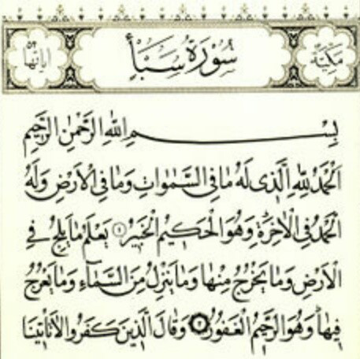 مكية سورة سبأ آياتها ٥٤
بِسْمِ اللهِ الرَّحْمٰنِ الرَّحِيمِ
اَلْحَمْدُ لِلّٰهِ الَّذِى لَهُ مَا فِى السَّمٰوَاتِ وَمَا فِى الْاَرْضِ وَلَهُ
الْحَمْدُ فِى الْاٰخِرَةِ وَهُوَ الْحَكِيمُ الْخَبِيرُ ١ يَعْلَمُ مَا يَلِجُ فِى
الْاَرْضِ وَمَا يَخْرُجُ مِنْهَا وَمَا يَنْزِلُ مِنَ السَّمَٓاءِ وَمَا يَعْرُجُ
فِيهَا وَهُوَ الرَّحِيمُ الْغَفُورُ ٢ وَقَالَ الَّذِينَ كَفَرُوا لَا تَأْتِينَا